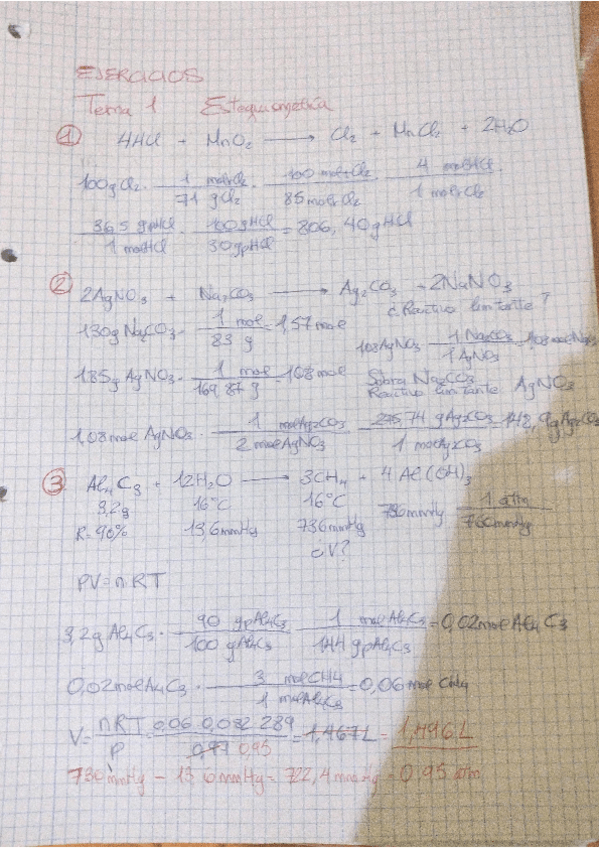 EJERCICIOS
Tema 1 Estequiometría
① 4HCl + MnO2 → Cl2 + MnCl2 + 2H2O
100g Cl2 · 1 mol Cl2 / 71 g Cl2 · 100 mol Cl2 / 85 mol Cl2 · 4 mol HCl / 1 mol Cl2
36,5 gpHCl / 1 mol HCl · 100 gHCl / 30 gpHCl = 806,40 g HCl
② 2AgNO3 + Na2CO3 → Ag2CO3 + 2NaNO3
¿Reactivo limitante?
130g Na2CO3 · 1 mol / 83 g = 1,57 mol
1,08 AgNO3 · 1 Na2CO3 / 1 AgNO3 = 1,08 mol Na2
185g AgNO3 · 1 mol / 169,87 g = 1,08 mol
Sobra Na2CO3
Reactivo limitante AgNO3
1,08 mol AgNO3 · 1 mol Ag2CO3 / 2 mol AgNO3 · 275,74 g Ag2CO3 / 1 mol Ag2CO3 = 148,9g Ag2CO3
③ Al4C3 + 12H2O → 3CH4 + 4Al(OH)3
3,2g 16°C 16°C
R=90% 13,6mmHg 736mmHg
736mmHg · 1 atm / 760mmHg
¿V?
PV=nRT
3,2g Al4C3 · 90 gpAl4C3 / 100 gAl4C3 · 1 mol Al4C3 / 144 gpAl4C3 = 0,02mol Al4C3
0,02mol Al4C3 · 3 mol CH4 / 1 mol Al4C3 = 0,06 mol CH4
V = nRT / P = 0,06 · 0,082 · 289 / 0,97 0,95 = 1,467L = 1,496L
736 mmHg − 13,6 mmHg = 722,4 mmHg = 0,95 atm